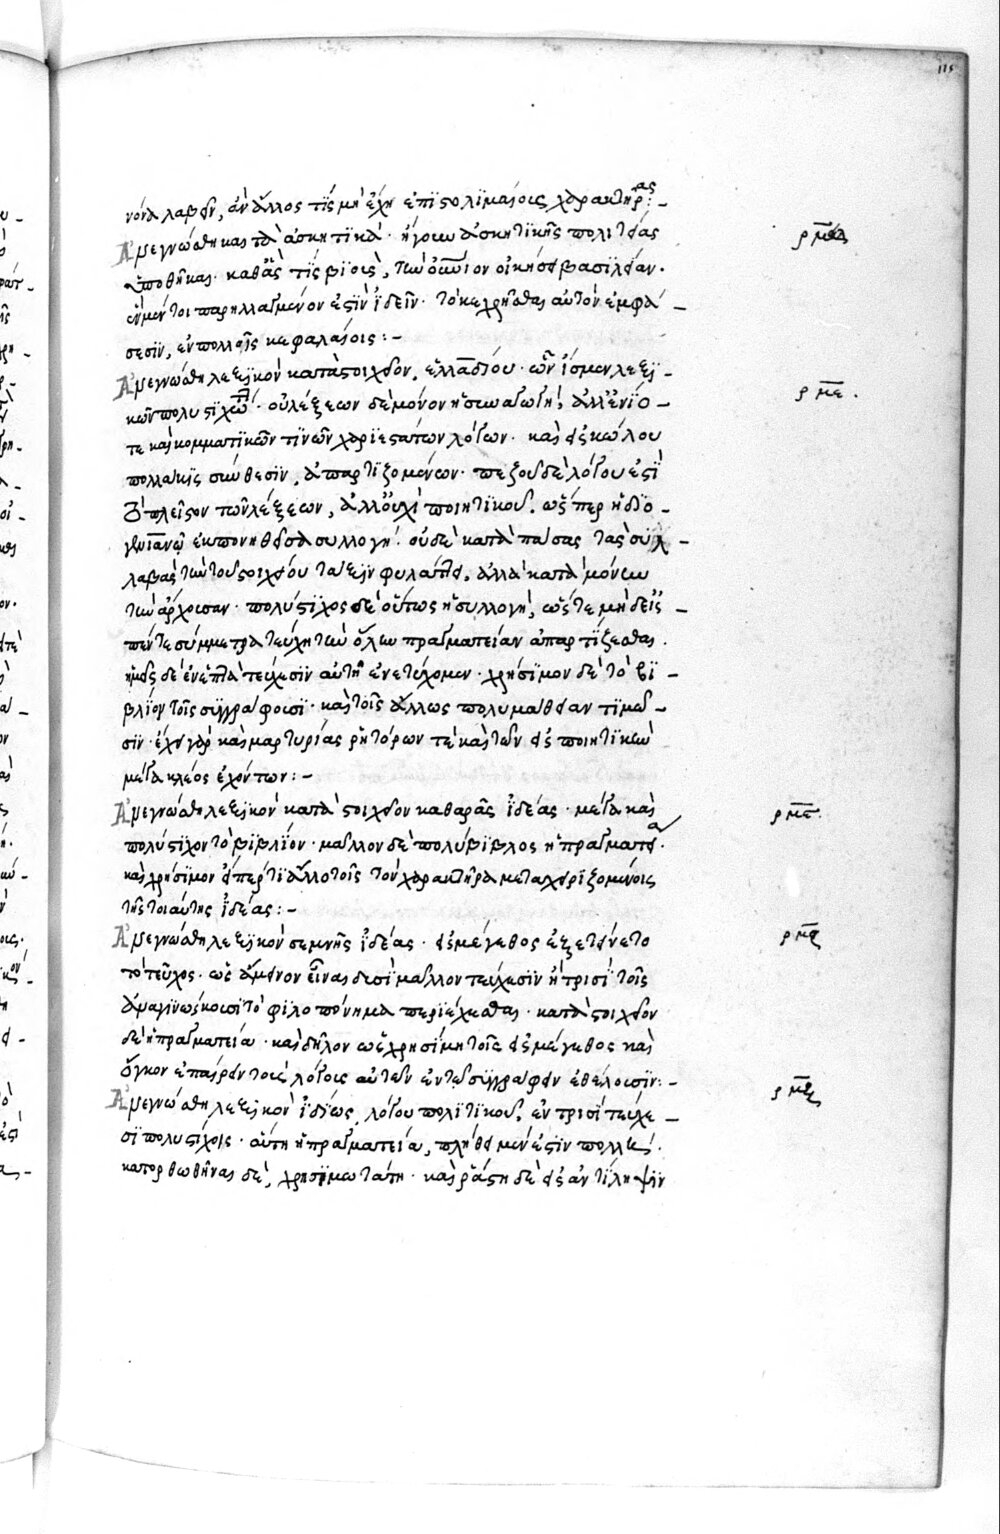 115
νόνα λαβεῖν, ἂν ἄλλος τίς μὴ ἔχῃ ἐπιστολιμαίους χαρακτῆρας:-
Ἀνεγνώσθη καὶ τὰ ἀσκητικά· ἤγουν ἀσκητικῆς πολιτείας
ὑποθῆκαι· καθ' ἃς τίς βιοὺς, τὴν οὐράνιον οἰκήσει βασιλείαν.
ἓν μέντοι παρηλλαγμένον ἐστὶν ἰδεῖν· τὸ κεχρῆσθαι αὐτὸν ἐμφά-
σεσιν, ἐν πολλοῖς κεφαλαίοις:-
Ἀνεγνώσθη λεξικὸν κατὰ στοιχεῖον, ἑλλαδίου· ὧν ἴσμεν λεξι-
κῶν πολυστιχώτατον· οὐ λέξεων δὲ μόνον ἡ συναγωγή, ἀλλ' ἐνίο-
τε καὶ κομματικῶν τινῶν χαριεστάτων λόγων· καὶ εἰς κώλου
πολλάκις σύνθεσιν, ἀπαρτιζομένων· πεζοῦ δὲ λόγου ἐστὶ
τὸ πλεῖστον τῶν λέξεων, ἀλλ' οὐχὶ ποιητικοῦ, ὥσπερ ἡ διο-
γενιανῷ ἐκπονηθεῖσα συλλογή. οὐδὲ κατὰ πάσας τὰς συλ-
λαβὰς τὴν τοῦ στοιχείου τάξιν φυλάττει, ἀλλὰ κατὰ μόνην
τὴν ἄρχουσαν· πολύστιχος δὲ οὕτως ἡ συλλογή, ὥστε μηδ' εἰς
πέντε σύμμετρα τεύχη τὴν ὅλην πραγματείαν ἀπαρτίζεσθαι.
ἡμεῖς δὲ ἐν ἑπτὰ τεύχεσιν αὐτῇ ἐνετύχομεν· χρήσιμον δὲ τὸ βι-
βλίον τοῖς συγγράφουσι· καὶ τοῖς ἄλλως πολυμάθειαν τιμῶ-
σιν· ἔχει γὰρ καὶ μαρτυρίας ῥητόρων τὲ καὶ τῶν εἰς ποιητικὴν
μέγα κλέος ἐχόντων:-
Ἀνεγνώσθη λεξικὸν κατὰ στοιχεῖον καθαρᾶς ἰδέας· μέγα καὶ
πολύστιχον τὸ βιβλίον· μᾶλλον δὲ πολύβιβλος ἡ πραγματεία.
καὶ χρήσιμον εἴπερ τι ἄλλο τοῖς τὸν χαρακτῆρα μεταχειριζομένοις
τῆς τοιαύτης ἰδέας:-
Ἀνεγνώσθη λεξικὸν σεμνῆς ἰδέας· εἰς μέγεθος ἐξετείνετο
τὸ τεῦχος· ὡς ἄμεινον εἶναι δυσὶ μᾶλλον τεύχεσιν ἢ τρισὶ τοῖς
ἀναγινώσκουσι τὸ φιλοπόνημα περιέχεσθαι· κατὰ στοιχεῖον
δὲ ἡ πραγματεία· καὶ δῆλον ὡς χρησίμη τοῖς εἰς μέγεθος καὶ
ὄγκον ἐπαίρειν τοὺς λόγους αὐτῶν ἐν τῷ συγγράφειν ἐθέλουσιν:-
Ἀνεγνώσθη λεξικὸν ἰδίως λόγου πολιτικοῦ, ἐν τρισὶ τεύχε-
σι πολυστίχοις· αὕτη ἡ πραγματεία, πλήθει μέν ἐστιν πολλή.
κατορθωθῆναι δὲ, χρησιμωτάτη· καὶ ῥᾴστη δὲ εἰς ἀντίληψιν
ρμδ
ρμε.
ρμς
ρμζ
ρμη